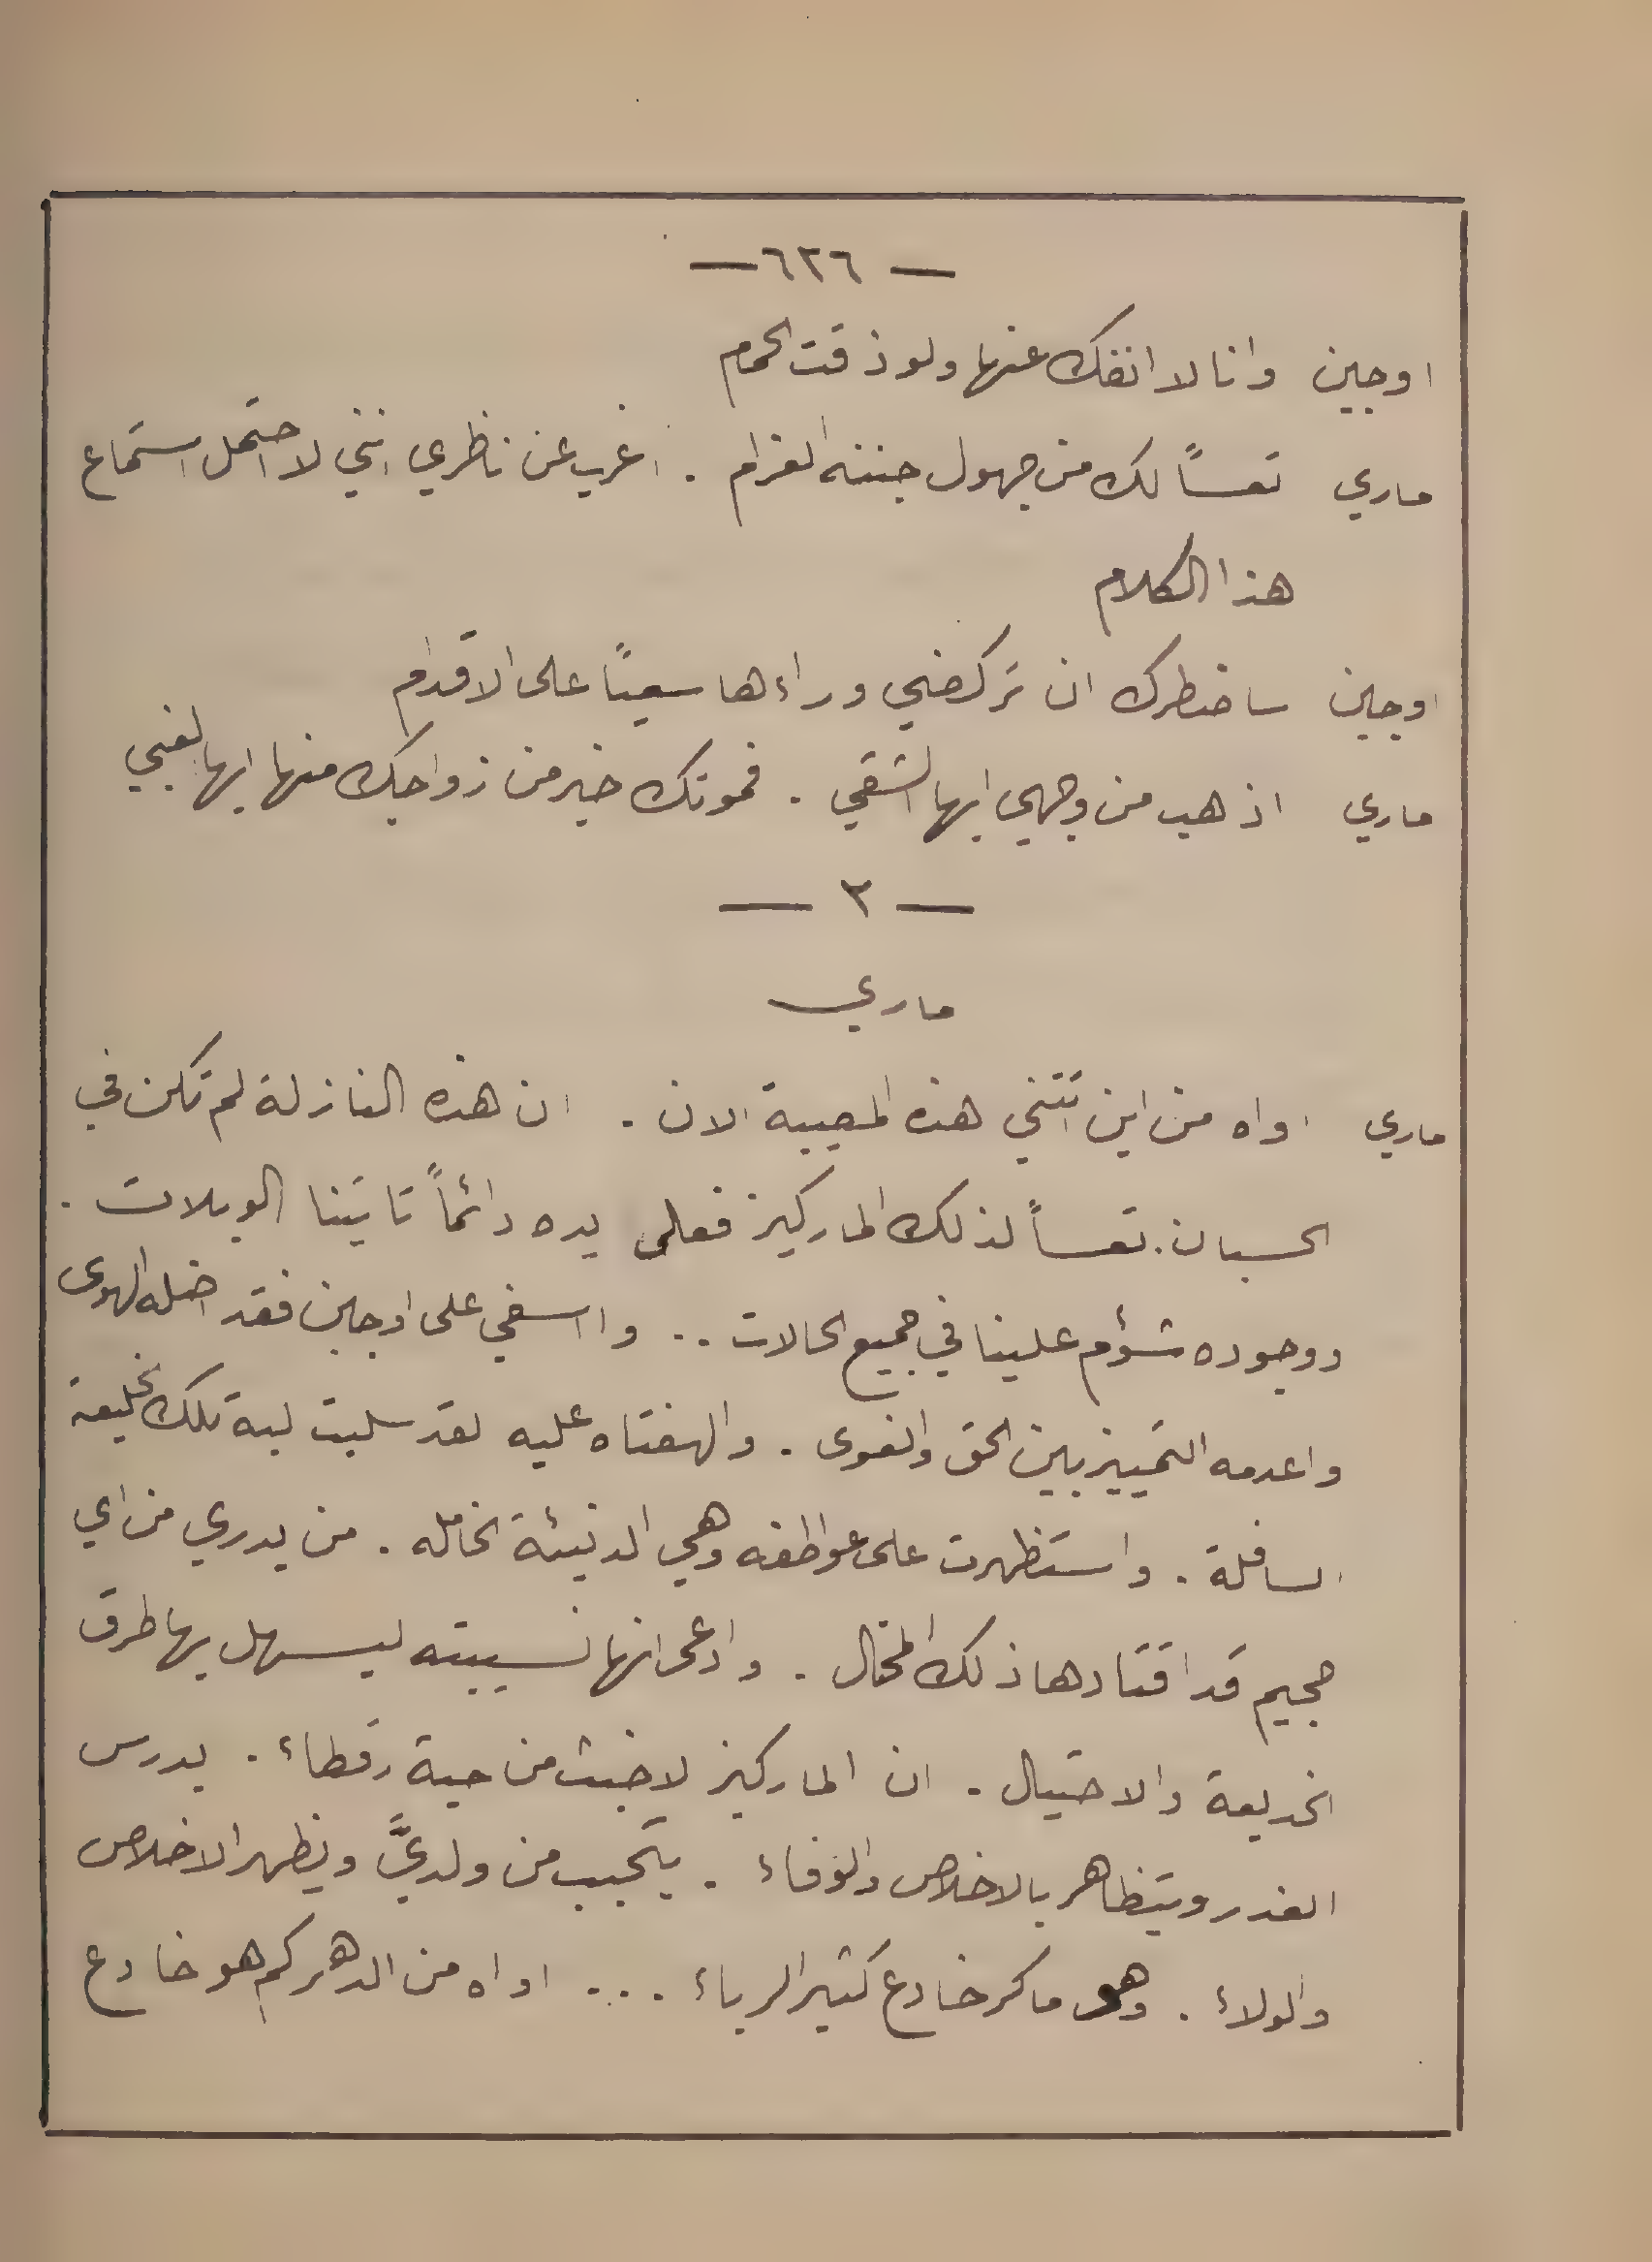 — ٦٢٦ —
اوجين وانا لا انفك عنها ولو ذقت الحمام
ماري تعساً لك من جهول جننه الغرام . اغرب عن ناظري انني لا احتمل استماع
هذا الكلام
اوجين ساضطرك ان تركضي وراءها سعياً على الاقدام
ماري اذهب من وجهي ايها الشقي . فموتك خير من زواجك منها ايها الغبي
— ٢ —
ماري
ماري اواه من اين اتتني هذه المصيبة الان . ان هذه النازلة لم تكن في
الحسبان . تعساً لذلك الماركيز فعلى يده دائماً تاتينا الويلات .
ووجوده شؤم علينا في جميع الحالات .. وا اسفي على اوجين فقد اضله الهوى
واعدمه التمييز بين الحق والغوى . والهفتاه عليه لقد سلبت لبه تلك الخليعة
السافلة . واستظهرت على عواطفه وهي الدنيئة الخامله . من يدري من اي
جحيم قد اقتادها ذلك المحتال . وادعى انها نسيبته ليسهل بها طرق
الخديعة والاحتيال . ان الماركيز لاخبث من حية رقطاء . يدرس
الغدر ويتظاهر بالاخلاص والوفاء . يتحبب من ولديَّ ويظهر الاخلاص
والولاء . وهو ماكر خادع كثير الرياء ... اواه من الدهر كم هو خادع